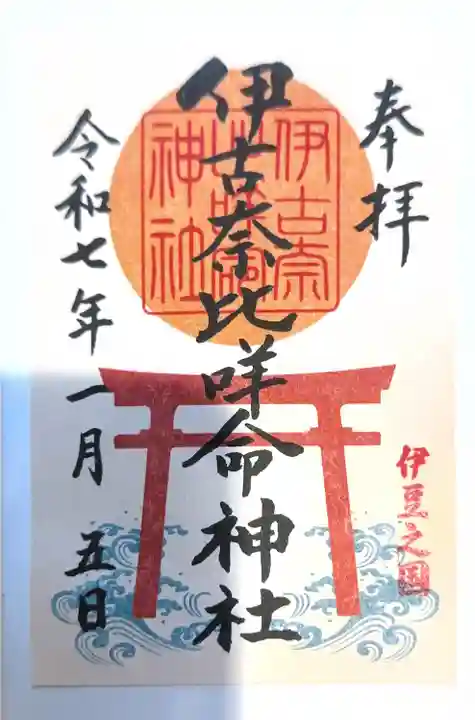 奉拝
伊豆之国
伊古奈比咩命神社
伊古奈
比咩命
神社
令和七年一月五日